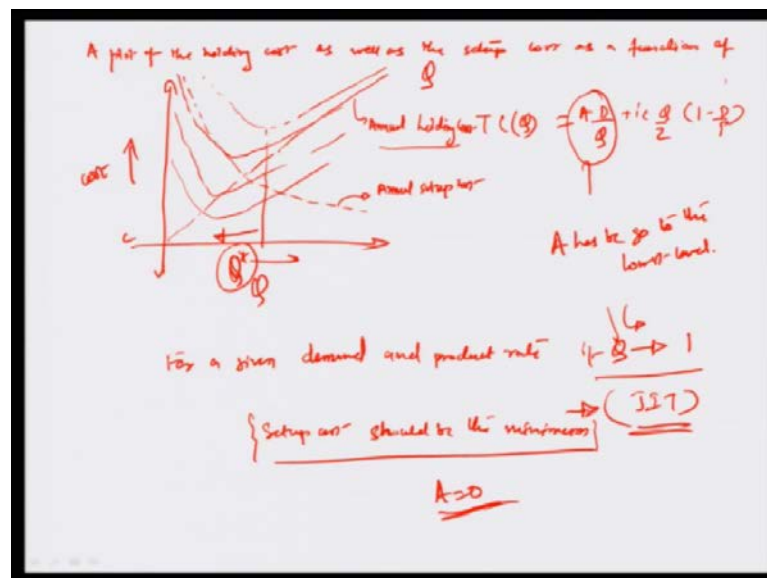 A plot of the holding cost as well as the setup cost as a function of
Q
cost
Annual holding cost TC(Q) = A D/Q + ic Q/2 (1 - D/P)
Annual setup cost
A has be go to the
lowest level.
Q*
Q
For a given demand and product rate if Q → 1
{Setup cost should be the minimum} → (JIT)
A=0